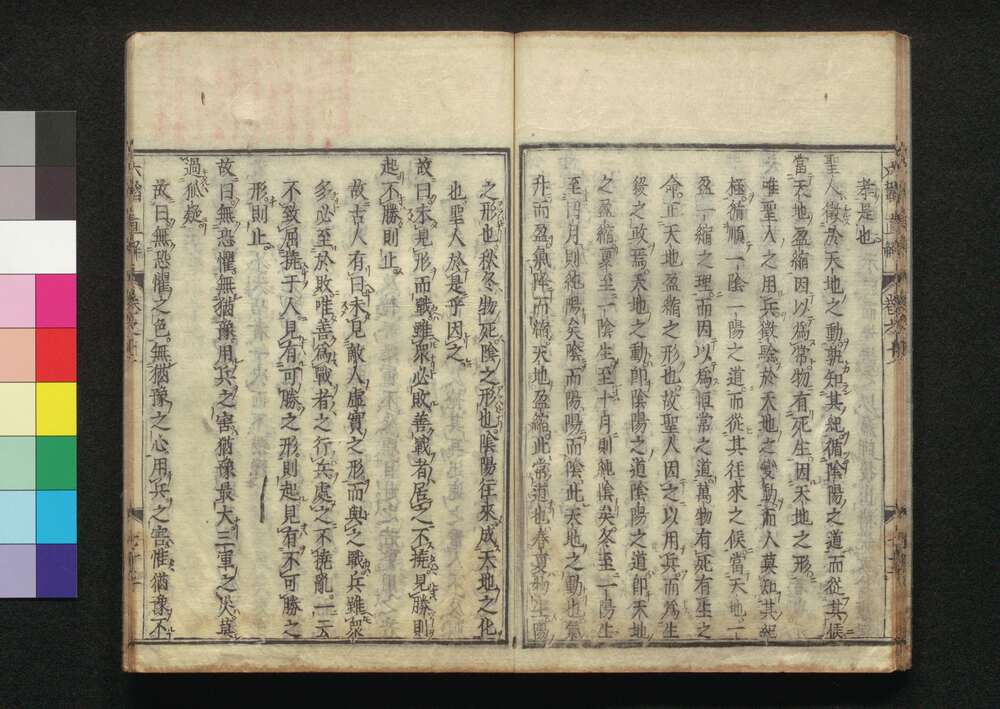 孝是也
聖人徵於天地之動孰知其紀循陰陽之道而從其候
當天地盈縮因以爲常物有死生因天地之形
唯聖人之用兵徵驗於天地之變動而人莫知其紀
極循順一陰一陽之道而從其往來之候當天地一
盈一縮之理而因以爲恒常之道萬物有死有生之
命正天地盈縮之形也故聖人因之以用兵而爲生
殺之政焉天地之動卽陰陽之道陰陽之道卽天地
之盈縮夏至一陰生至十月則純陰矣冬至一陽生
至四月則純陽矣陰而陽陽而陰此天地之動也氣
升而盈氣降而縮天地盈縮此常道也春夏物生陽
之形也秋冬物死陰之形也陰陽往來成天地之化
也聖人於是乎因之
故曰未見形而戰雖衆必敗善戰者居之不撓見勝則
起不勝則止
故古人有曰未見敵人虛實之形而與之戰兵雖衆
多必至於敗唯善爲戰者之行兵處之不撓亂一云
不致屈撓于人見有可勝之形則起見有不可勝之
形則止
故曰無恐懼無猶豫用兵之害猶豫最大三軍之災莫
過狐疑
故曰無恐懼之色無猶豫之心用兵之害惟猶豫不
六韜直解